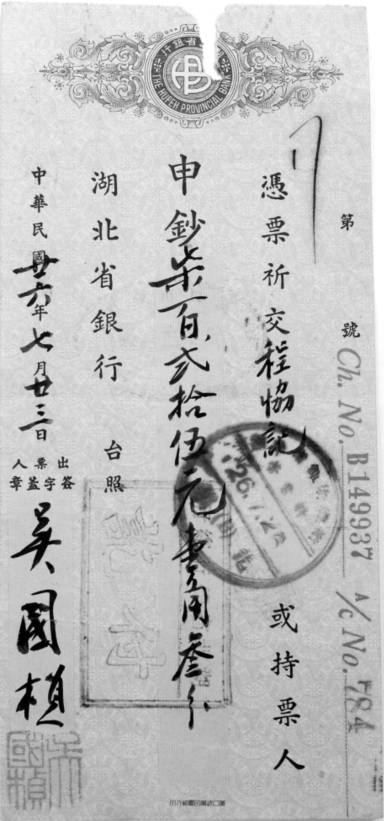 THE HUPEH PROVINCIAL BANK
第 號
Ch. No. B149937 A/c No. 784
憑票祈交程協記 或持票人
申鈔柒百弍拾伍元壹角叁分
湖北省銀行 台照
中華民國廿六年七月廿三日
出票人
簽字蓋章
吳國楨
26.7.2